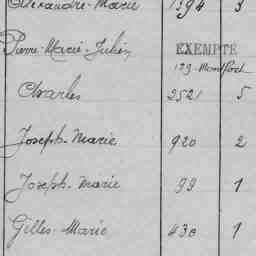 Alexandre-Marie 1394 3
Pierre-Marie-Julien EXEMPTÉ
129-Montfort
Charles 2521 5
Joseph-Marie 920 2
Joseph-Marie 99 1
Gilles-Marie 430 1